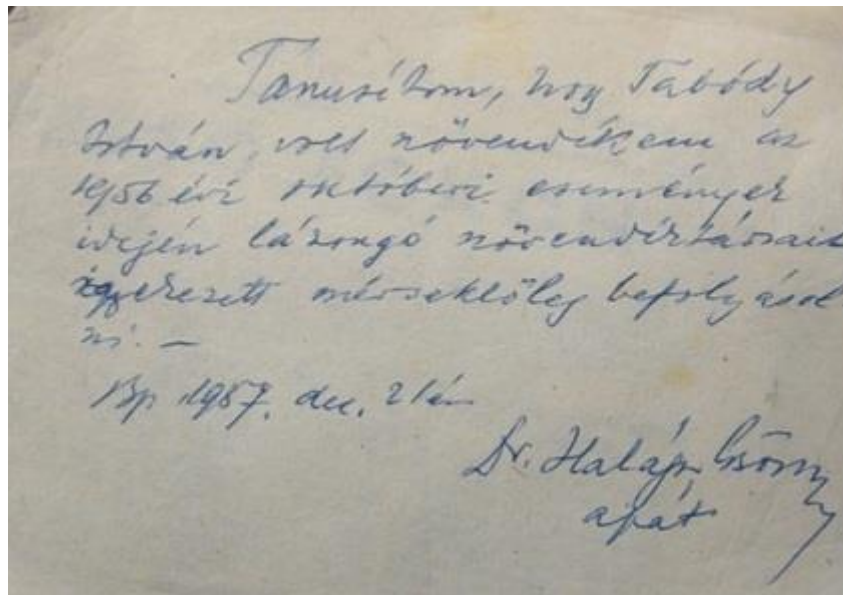 Tanusítom, hogy Tabódy
István volt növendékem az
1956 évi októberi események
idején lázongó növendéktársait
igyekezett mérséklőleg befolyásol
ni. —
Bp 1957. dec. 21én
Dr. Halápy
apát